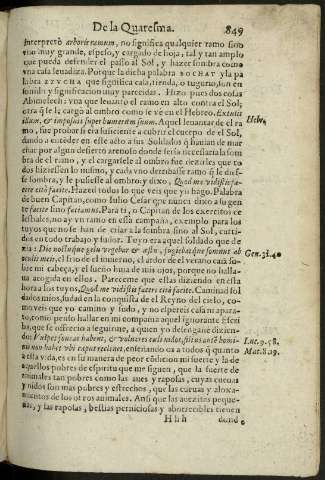 De la Quaresma. 849
interpretò arboris ramum, no significa qualquier ramo sino
vno muy grande, espeso, y cargado de hoja; tal y tan amplo
que pueda defender el passo al Sol, y hazer sombra como
vna casa leuadiza. Porque la dicha palabra SOCHAT y la pa
labra que significa casa, tienda, o tugurio, son en
sonido y significacion muy parecidas. Hizo pues dos cosas
Abimelech; vna que leuantò el ramo en alto contra el Sol;
otra que le cargò al ombro como se vè en el Hebreo. Extulit
illum, & imposuit super humerum suum. Aquel leuantar de el ra
Hebr.
mo, fue probar si era suficiente a cubrir el cuerpo de el Sol,
dando a entender en este acto a sus Soldados que si auian de mar
char por algun desierto arenoso donde seria necessaria la som
bra de el ramo, y el cargarsele al ombro fue dezirles que to
dos hiziessen lo mismo, y cada vno derribasse ramo que le dies-
se sombra, y le pusiesse al ombro y dixo, Quod me vidistis fa-
cere citò facite. Hazed todos lo que veis que yo hago. Palabra
de buen Capitan, como Iulio Cesar que nunca dixo a su gen
te facite sino faciamus. Para ti, o Capitan de los exercitos ce
lestiales, no ay vn ramo en essa campaña, exemplo para los
tuyos que no se han de criar a la sombra sino al Sol, curti-
dos en todo trabajo y sudor. Tuyo era aquel soldado que de
zia: Die noctuque gelu vrgebar & æstu, fugiebatque somnus ab
oculis meis, el frio de el inuierno, el ardor de el verano caìa so-
Gen. 31. 40
bre mi cabeça, y el sueño huìa de mis ojos, porque no halla-
ua acogida en ellos. Pareceme que estas diziendo en esta
hora a los tuyos, Quod me vidistis facere citò facite. Caminad sol
dados mios, sudad en la conquista de el Reyno del cielo, co-
mo veis que yo camino y sudo, y no espereis casa ni apara-
do, como penso hallar en mi compañia aquel ignorante Escri
ba, que se ofreciò a seguirme, a quien yo desengañè dizien-
do: Vulpes foueas habent, & volucres cæli nidos, filius autē homi-
nis non habet vbi caput reclinet, enseñando os a todos que quanto
Luc. 9. 58.
Mat. 8. 20.
a esta vida, es en su manera de peor condicion mi suerte y la de
aquellos pobres de espiritu que me siguen, que la suerte de
animales tan pobres como las aues y raposas, cuyas cueuas
y nidos son mas pobres y estrechos, que las cueuas y aloxa-
mientos de los otros animales. Ansi que las auezitas peque-
ñas, y las raposas, bestias perniciosas y aborrecibles tienen
Hhh